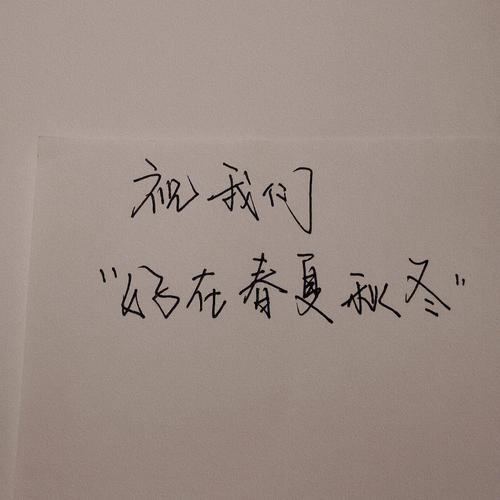 祝我们
“好在春夏秋冬”